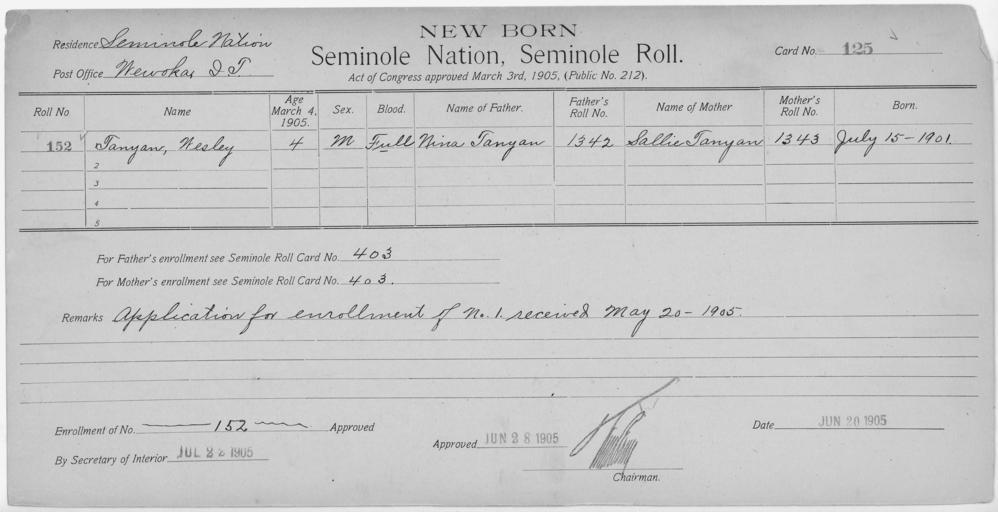 NEW BORN
Residence Seminole Nation
Seminole Nation, Seminole Roll.
Card No. 125
Post Office Wewoka, I T.
Act of Congress approved March 3rd, 1905, (Public No. 212).
Roll No Name Age March 4, 1905. Sex. Blood. Name of Father. Father's Roll No. Name of Mother Mother's Roll No. Born.
152 Tanyan, Wesley 4 M Full Nina Tanyan 1342 Sallie Tanyan 1343 July 15-1901.
2
3
4
5
For Father's enrollment see Seminole Roll Card No. 403
For Mother's enrollment see Seminole Roll Card No. 403.
Remarks Application for enrollment of No. 1. received May 20-1905.
Enrollment of No. 152 Approved
By Secretary of Interior JUL 22 1905
Approved JUN 28 1905
Chairman.
Date JUN 20 1905